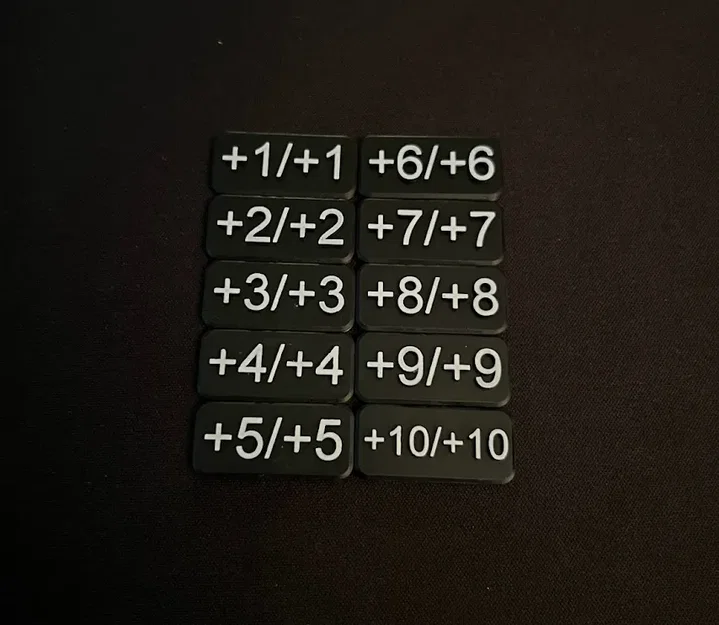 +1/+1
+6/+6
+2/+2
+7/+7
+3/+3
+8/+8
+4/+4
+9/+9
+5/+5
+10/+10